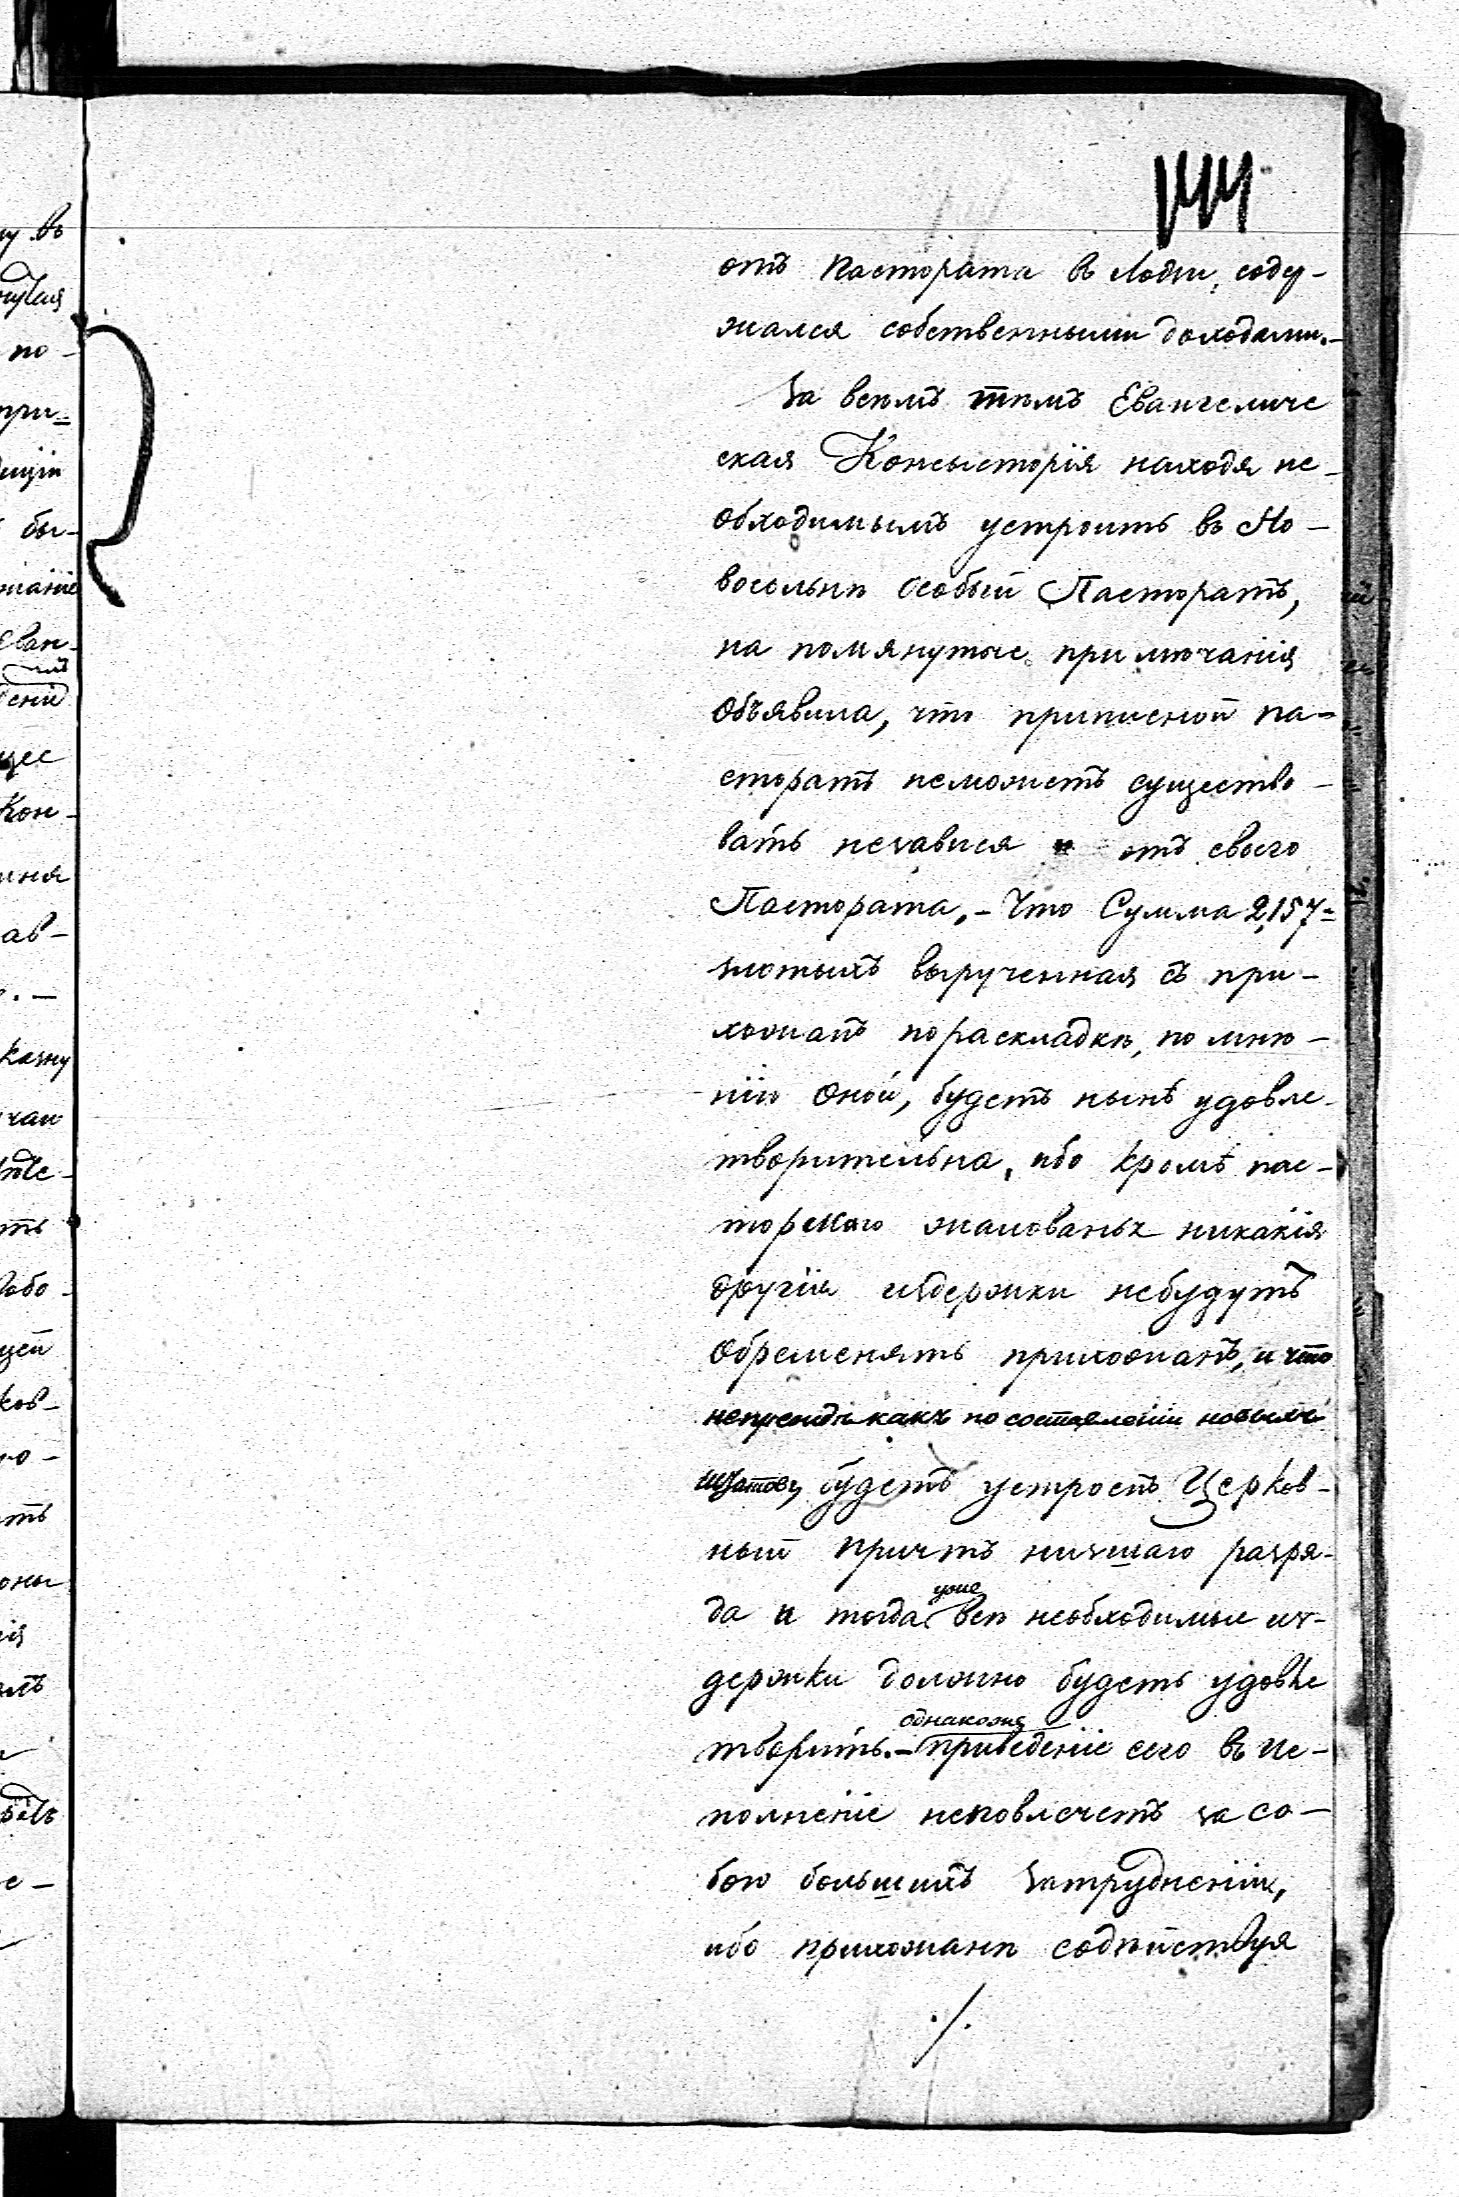 144
отъ Пастората в Лодзи, содер-
жался собственными доходами.-
За всѣмъ тѣмъ Евангеличе
ская Консисторія находя не-
обходимымъ устроить въ Но-
восольнѣ особый Пасторатъ,
на помянутые примѣчанія
объявила, что приписной па-
сторатъ неможетъ существо-
вать независя и отъ своего
Пастората,- Что Сумма 2,157=
злотыхъ вырученная съ при-
хожанъ пораскладкѣ, по мнѣ-
нію оной, будетъ нынѣ удовле-
творительна, ибо кромѣ пас-
торскаго жалованья никакія
другія издержки небудутъ
обременять прихожанъ, и что
какъ по составленіи новыхъ
штатовъ, будетъ устроенъ Церков-
ный причтъ низшаго разря-
да и тогда уже всѣ необходимые из-
держки должно будетъ удовле
творить.- однакоже приведеніе сего въ ис-
полненіе неповлечетъ за со-
бою большихъ затрудненій,
ибо прихожанѣ содѣйствуя
./.
ну въ
по-
при=
бы-
Еван-
Кон-
ав-
казну
ть
ков-